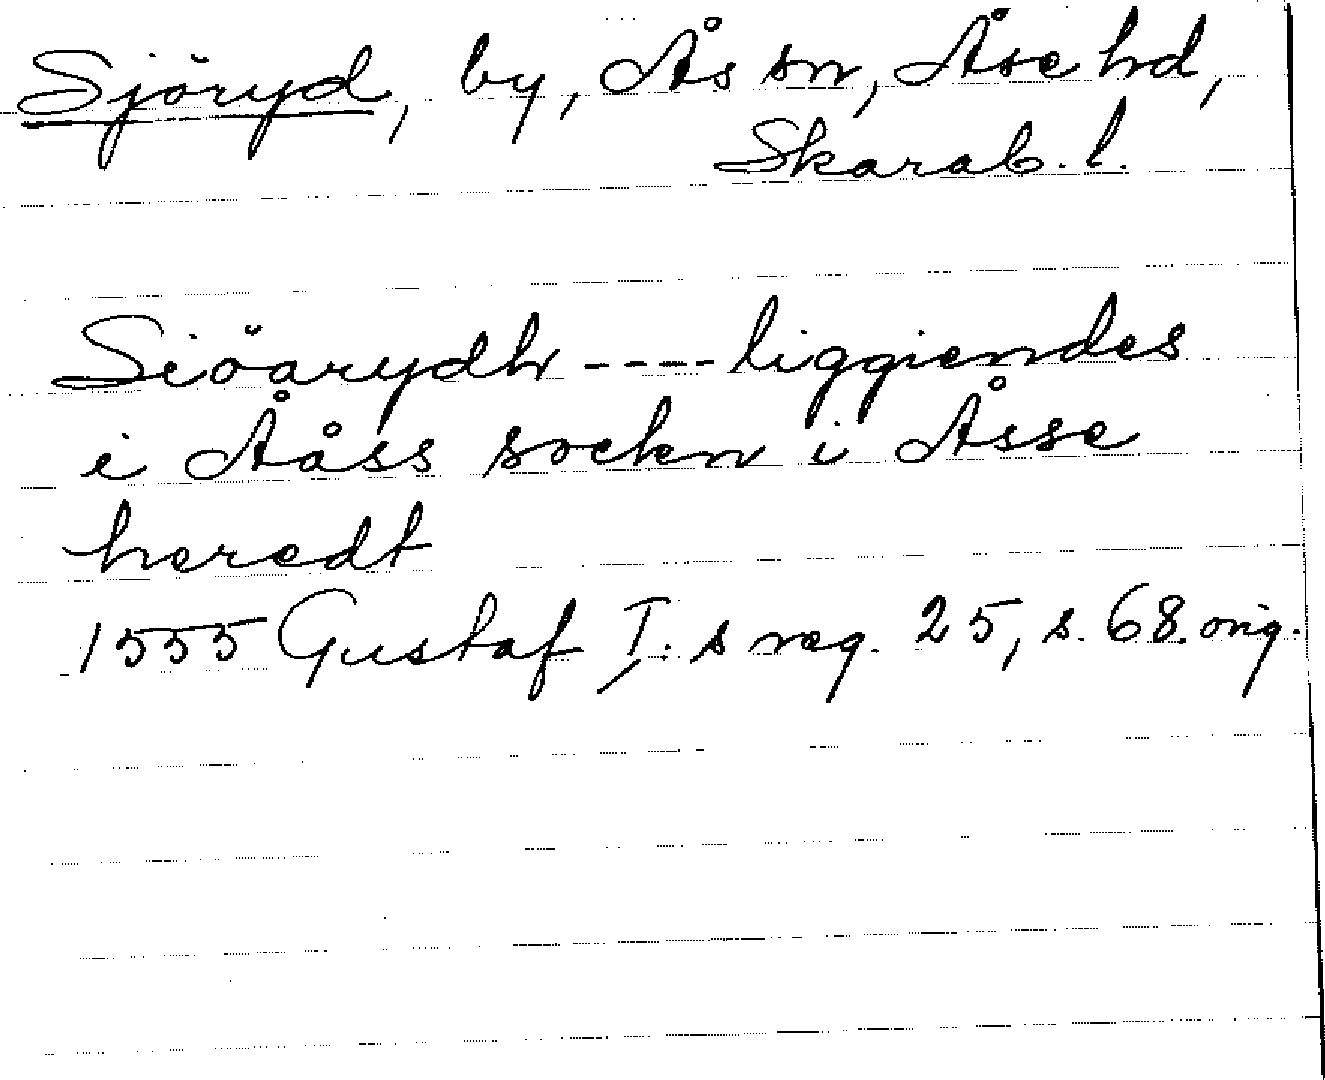 Sjöryd, by, Ås sn, Åse hd,
Skarab. l.
Siöarydh ---- liggiendes
i Ååss sockn i Åsse
heredt
1555 Gustaf I:s reg. 25, s. 68. orig.